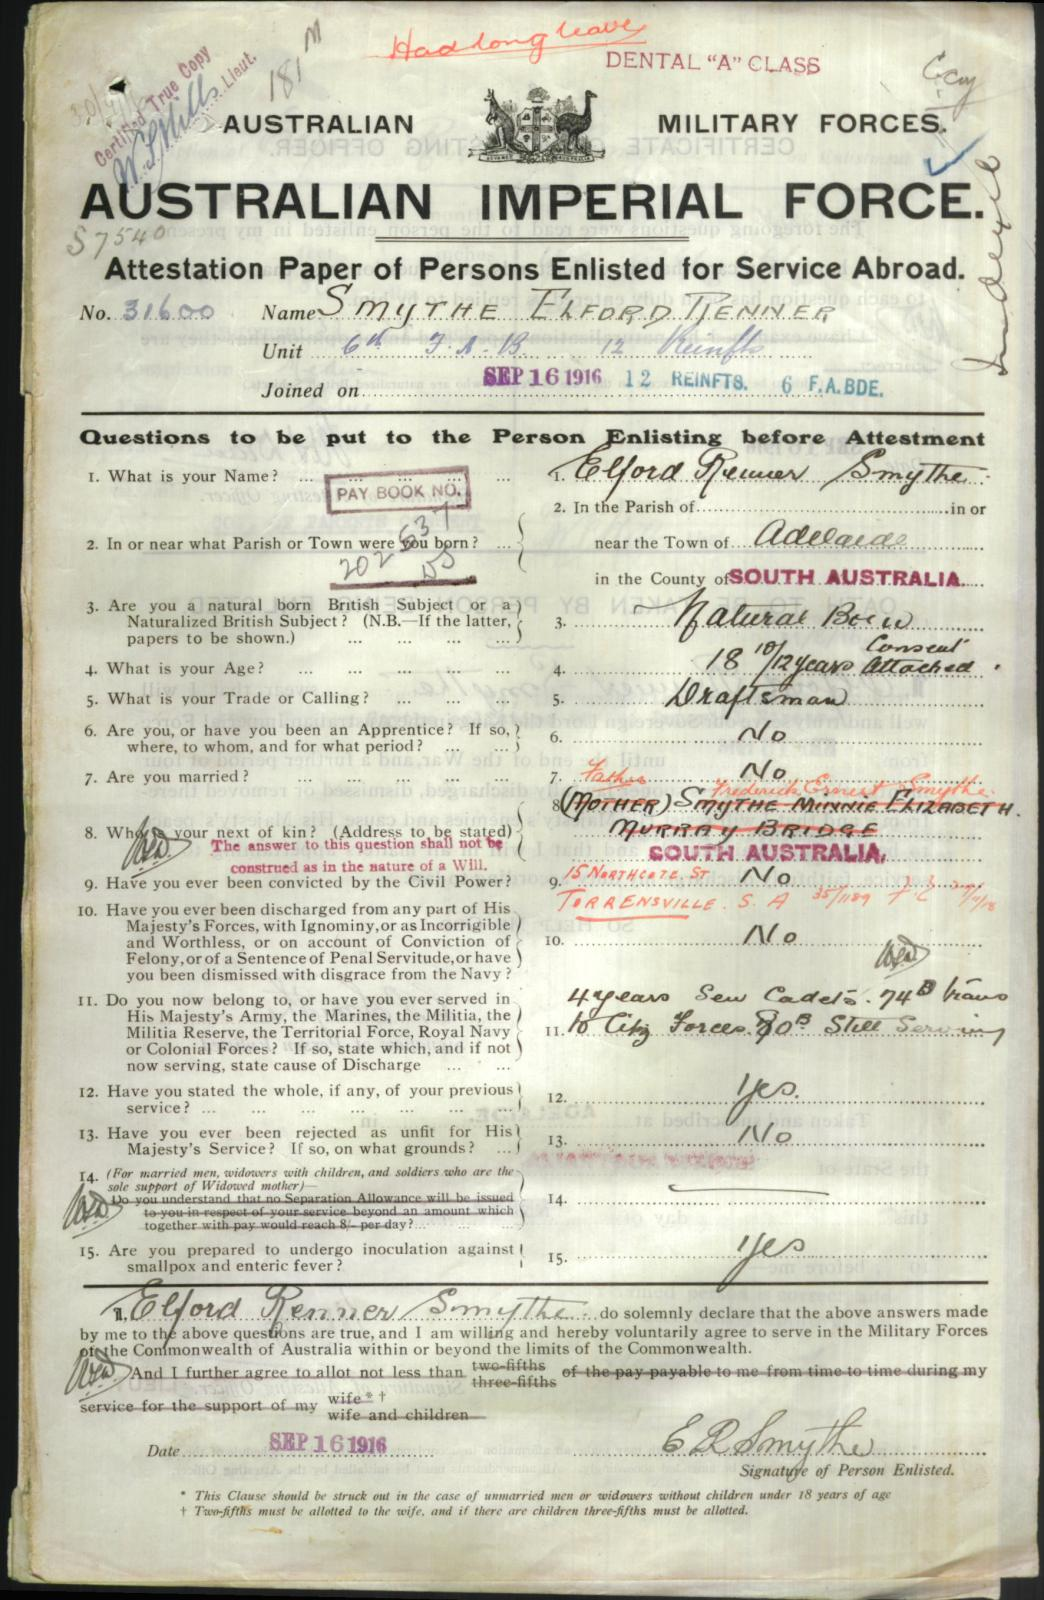 Had long leave
DENTAL "A" CLASS
Certified True Copy
Lieut.
181 M
AUSTRALIAN MILITARY FORCES.
AUSTRALIAN IMPERIAL FORCE.
S7540
Attestation Paper of Persons Enlisted for Service Abroad.
No. 31600 Name SMYTHE ELFORD RENNER
Unit 6th F.A.B 12 Reinfts
Joined on SEP 16 1916 12 REINFTS. 6 F.A.BDE.
Questions to be put to the Person Enlisting before Attestment
1. What is your Name? ... 1. Elford Renner Smythe
PAY BOOK NO.
2. In the Parish of ... in or
2. In or near what Parish or Town were you born? ... near the Town of Adelaide
in the County of SOUTH AUSTRALIA.
3. Are you a natural born British Subject or a
Naturalized British Subject? (N.B.—If the latter, 3. Natural Born
papers to be shown.) ... ...
4. What is your Age? ... ... ... ... 4. 18 10/12 years Consent Attached
5. What is your Trade or Calling? ... ... ... 5. Draftsman
6. Are you, or have you been an Apprentice? If so, 6. No
where, to whom, and for what period? ... ...
7. Are you married? ... ... ... ... ... 7. No
Father Frederick Ernest Smythe
8. (MOTHER) SMYTHE MINNIE ELIZABETH.
MURRAY BRIDGE
8. Who is your next of kin? (Address to be stated)
The answer to this question shall not be SOUTH AUSTRALIA.
construed as in the nature of a Will.
9. Have you ever been convicted by the Civil Power? 9. No
15 NORTHCOTE ST
TORRENSVILLE. S. A 35/1189
10. Have you ever been discharged from any part of His
Majesty's Forces, with Ignominy, or as Incorrigible
and Worthless, or on account of Conviction of 10. No
Felony, or of a Sentence of Penal Servitude, or have
you been dismissed with disgrace from the Navy?
11. Do you now belong to, or have you ever served in 4 years Sen Cadets. 74B trans
His Majesty's Army, the Marines, the Militia, the
Militia Reserve, the Territorial Force, Royal Navy 11. to Citz Forces. 80B Still Serving
or Colonial Forces? If so, state which, and if not
now serving, state cause of Discharge ... ...
12. Have you stated the whole, if any, of your previous
service? ... ... ... ... ... ... 12. Yes.
13. Have you ever been rejected as unfit for His
Majesty's Service? If so, on what grounds? ... 13. No
14. (For married men, widowers with children, and soldiers who are the
sole support of Widowed mother)—
Do you understand that no Separation Allowance will be issued 14.
to you in respect of your service beyond an amount which
together with pay would reach 8/- per day? ...
15. Are you prepared to undergo inoculation against
smallpox and enteric fever? 15. Yes
I, Elford Renner Smythe do solemnly declare that the above answers made
by me to the above questions are true, and I am willing and hereby voluntarily agree to serve in the Military Forces
of the Commonwealth of Australia within or beyond the limits of the Commonwealth.
And I further agree to allot not less than two-fifths three-fifths of the pay payable to me from time to time during my
service for the support of my wife * † wife and children
Date SEP 16 1916 E R Smythe
Signature of Person Enlisted.
* This Clause should be struck out in the case of unmarried men or widowers without children under 18 years of age
† Two-fifths must be allotted to the wife, and if there are children three-fifths must be allotted.